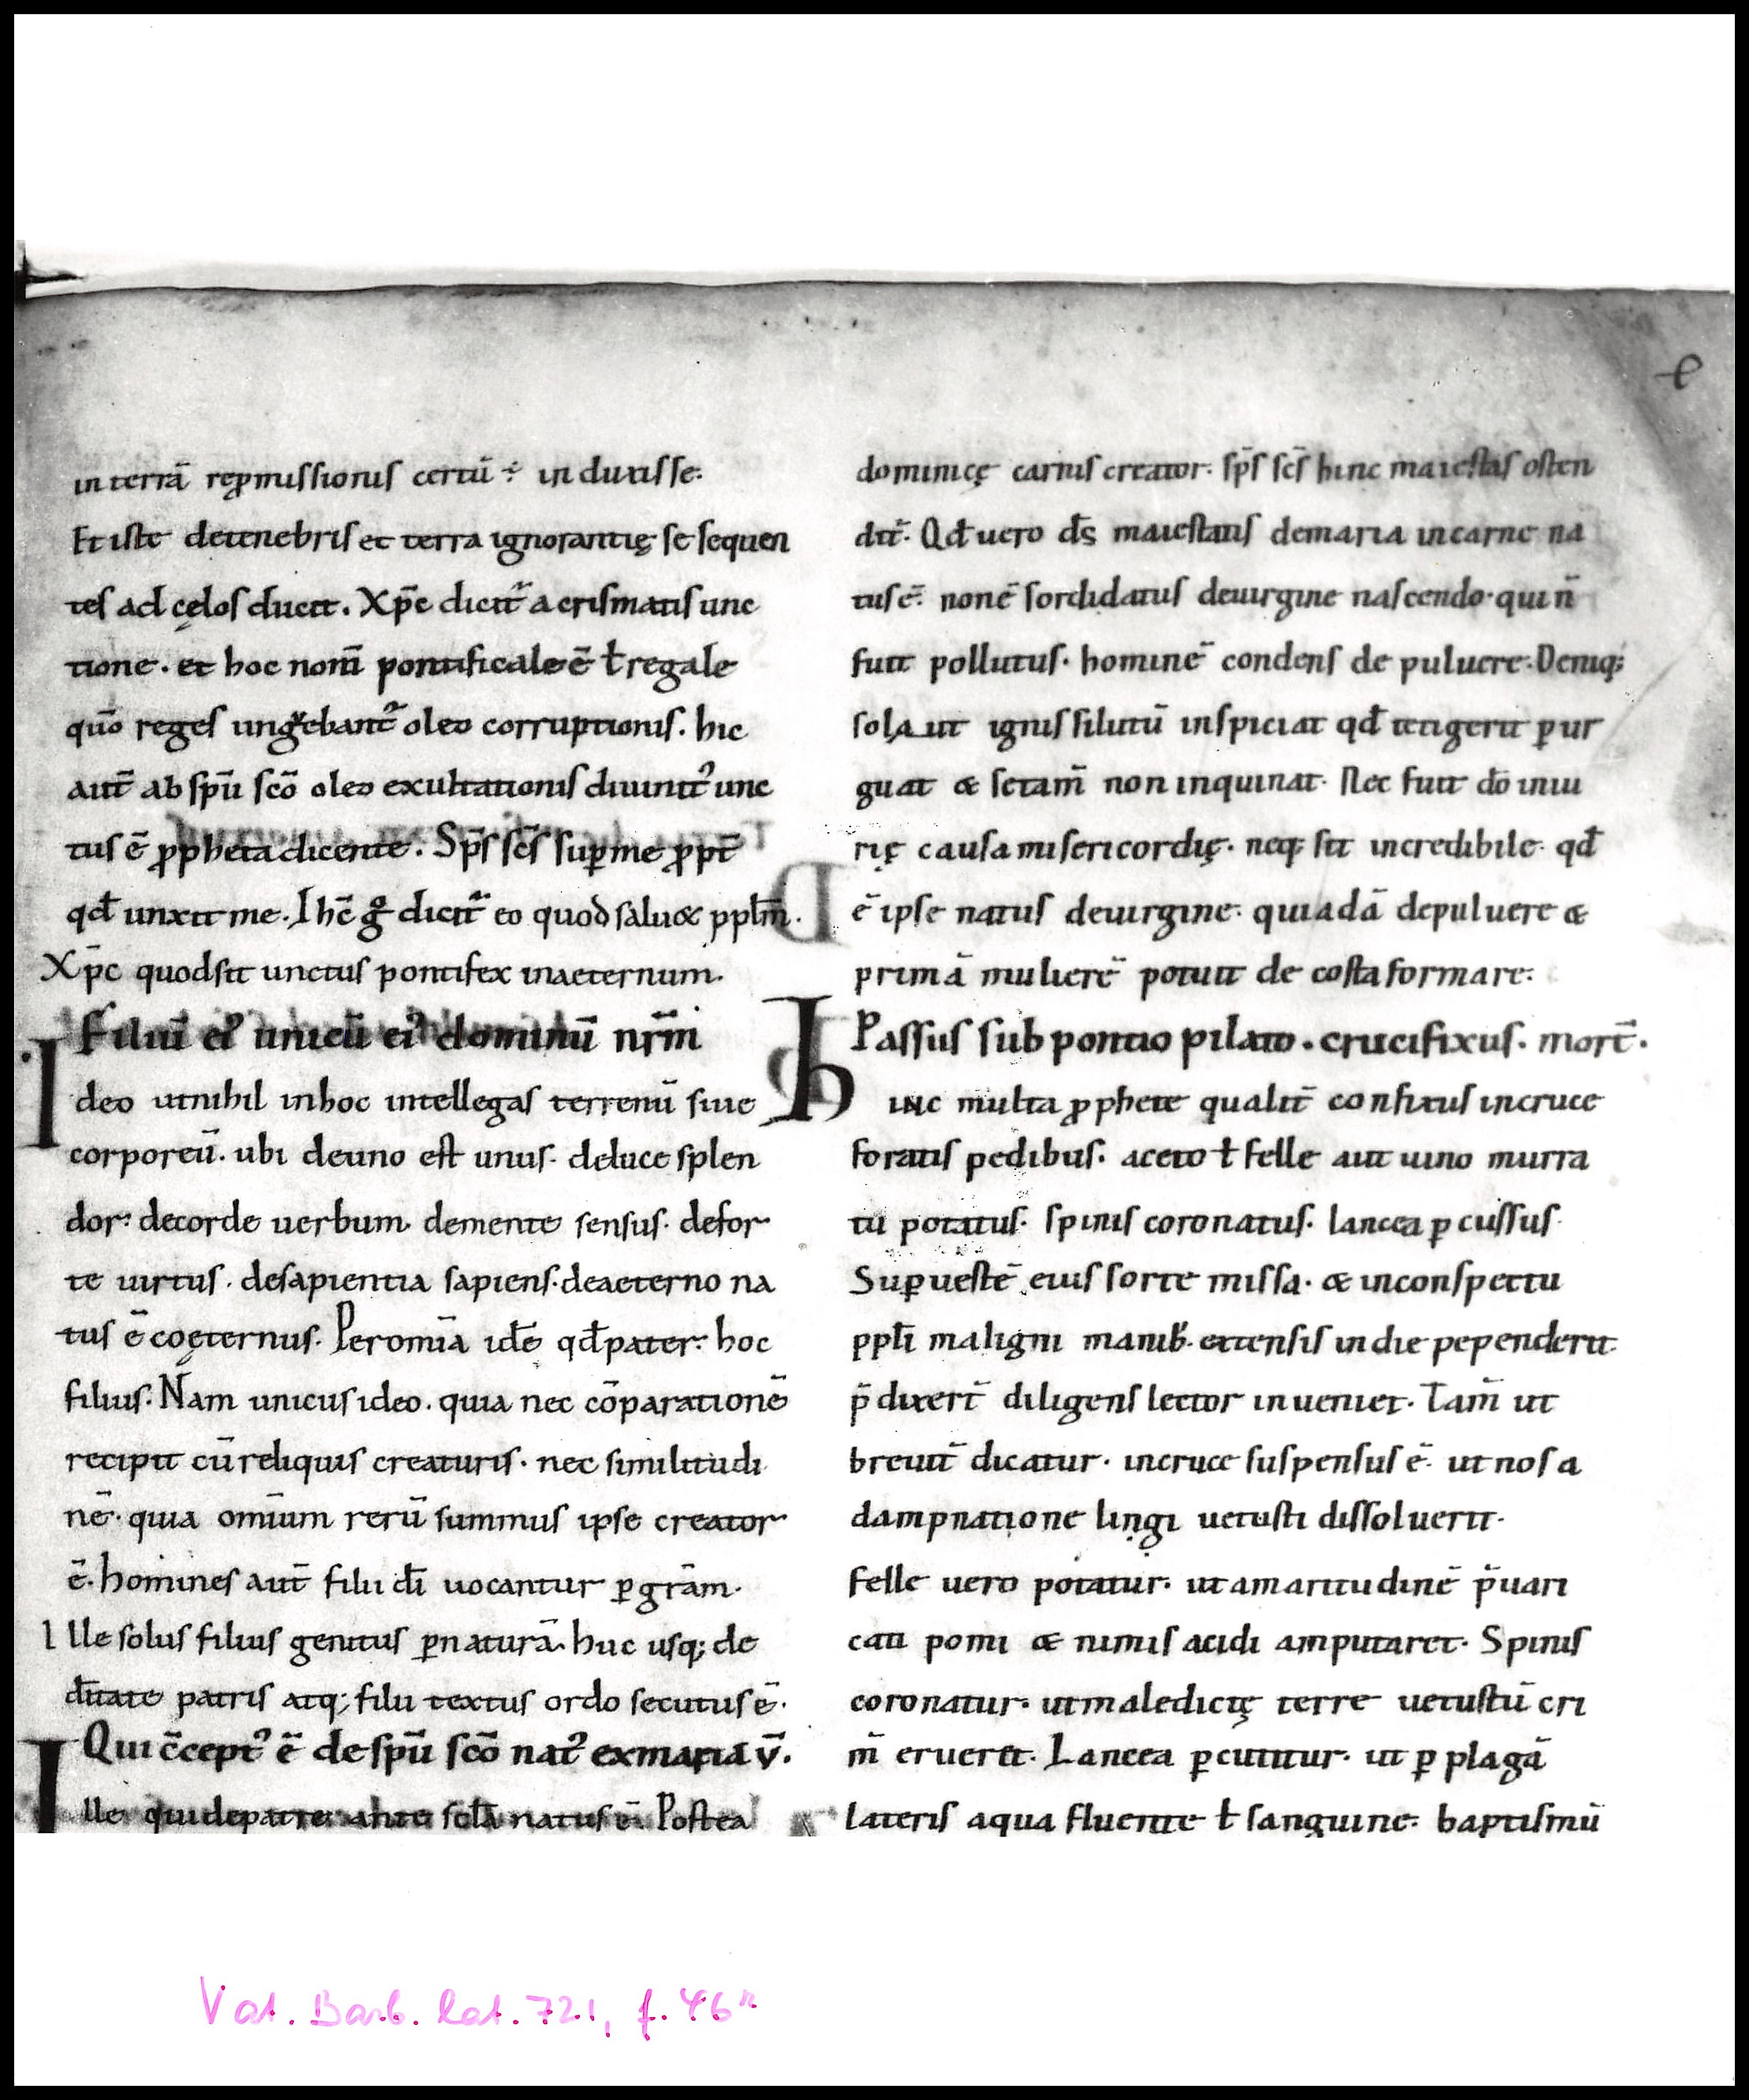 in terrā rep̱missionis certū ÷ induxisse.
Et iste detenebris et terra ignorantię se sequen
tes ad cęlos ducit. Xp̄c dicit̄ a crismatis unc
tione. et hoc nom̄ pontificale ē ł regale
quō reges ungebant̄ oleo corruptionis. hic
aut̄ ab sp̄u scō oleo exultationis diuinit᾽ unc
tus ē ꝓpheta dicente. Sp̄s sc̄s sup̱ me ꝓpt̄
qđ unxit me. Ihc̄ ḡ dicit̄ eo quod saluꝫ ppl̄m.
Xp̄c quodsit unctus pontifex inaeternum.
Filiū ei᾽ unicū ei᾽ dominū nr̄m
I deo utnihil inhoc intellegas terrenū siue
corporeū. ubi deuno est unus. deluce splen
dor. decorde uerbum. demente sensus. defor
te uirtus. desapientia sapiens. deaeterno na
tus ē coęternus. Peromīa idē qđ pater. hoc
filius. Nam unicus ideo. quia nec cōparationē
recipit cū reliquis creaturis. nec similitudi
nē. quia omīum rerū summus ipse creator
ē. homines aut̄ filii dī uocantur ꝑ grām.
Ille solus filius genitus ꝑ naturā. huc usq; de
dūtate patris atq; filii textus ordo secutus ē.
Qui c̄cept᾽ ē de sp̄u scō nat᾽ exmaria v̄.
Ille quidepatre ante scl̄a natus ē. Postea
e
dominicę carnis creator. sp̄s sc̄s hinc maiestas osten
dit̄. Qđ uero d̄s maiestatis demaria incarne na
tus ē. nonē sordidatus deuirgine nascendo. qui n̄
fuit pollutus. hominē condens de puluere. Deniq;
sola ut ignis si lutū inspiciat qđ tetigerit ꝑur
guat & se tam̄ non inquinat. Nec fuit dō iniu
rię causa misericordię. neq; sit incredibile. qđ
ē ipse natus deuirgine. quia dā depuluere &
primā mulierē potuit de costa formare.
Passus sub pontio pilato. crucifixus. mort̄.
Hinc multa ꝓphete qualit̄ confixus incruce
foratis pedibus. aceto ł felle aut uino murra
tū potatus. spinis coronatus. lancea ꝑcussus.
Suꝑ uestē eius sorte missa. & inconspectu
ppl̄i maligni manib᾽. extensis in die pependerit
p̄dixert̄ diligens lector inueniet. Tam̄ ut
breuit̄ dicatur. incruce suspensus ē. ut nos a
dampnatione lingi uetusti dissoluerit.
Felle uero potatur. ut amaritudinē p̄uari
cati pomi & nimis acidi amputaret. Spinis
coronatur. utmaledictę terre uetustū cri
m̄ erueret. Lancea ꝑcutitur. ut ꝑ plagā
lateris aqua fluente ł sanguine. baptismū
Vat. Barb. lat. 721, f. 46r